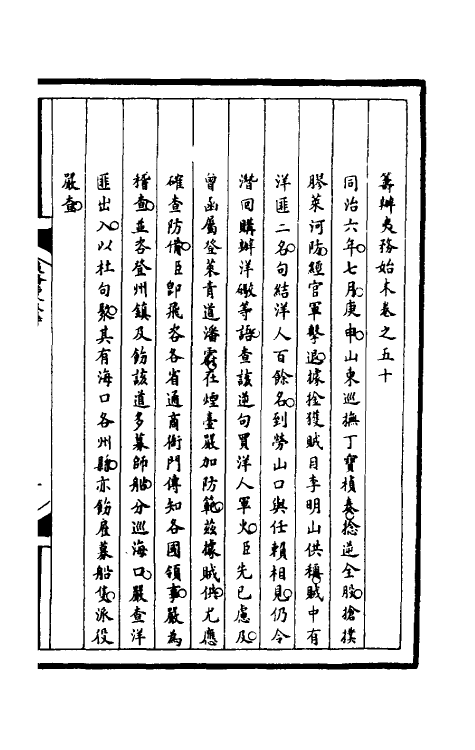 籌辦夷務始末卷之五十
同治六年七月庚申山東巡撫丁寶楨奏捻逆全股搶撲
膠萊河防經官軍擊退據捡獲賊目李明山供稱賊中有
洋匪二名句結洋人百餘名到勞山口與任賴相見仍令
潛回購辦洋礮等語查該逆句買洋人軍火臣先已慮及
曾函屬登萊青道潘霨在煙臺嚴加防範茲據賊供尤應
確查防備臣卽飛咨各省通商衙門傳知各國領事嚴爲
稽查並咨登州鎮及飭該道多募師船分巡海口嚴查洋
匪出入以杜句聚其有海口各州縣亦飭雇募船隻派役
嚴查